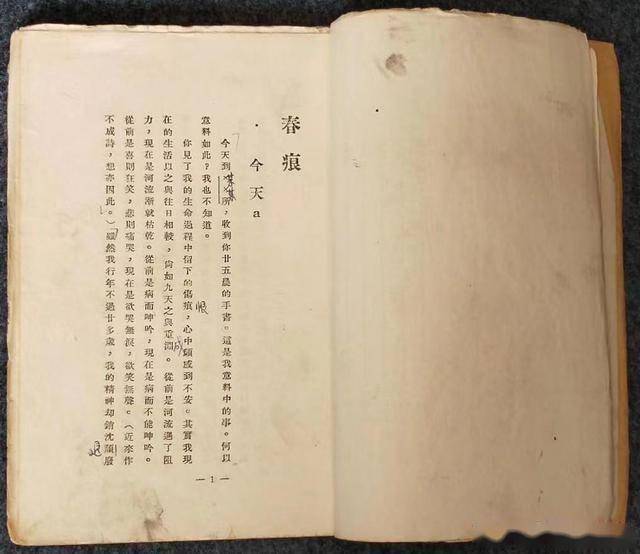 春痕
· 今天a
今天到××所，收到你廿五晨的手書。這是我意料中的事。何以
某某
意料如此？我也不知道。
你見了我的生命過程中留下的傷痕，心中頗感到不安。其實我現
恨
在的生活以之與往日相較，尚如九天之與重淵。從前是河流遇了阻
成
力，現在是河流漸就枯乾。從前是病而呻吟，現在是病而不能呻吟。
從前是喜則狂笑，悲則痛哭，現在是欲哭無淚，欲笑無聲。（近來作
不成詩，想亦因此。）雖然我行年不過廿多歲，我的精神却銷沈頹廢
— 1 —